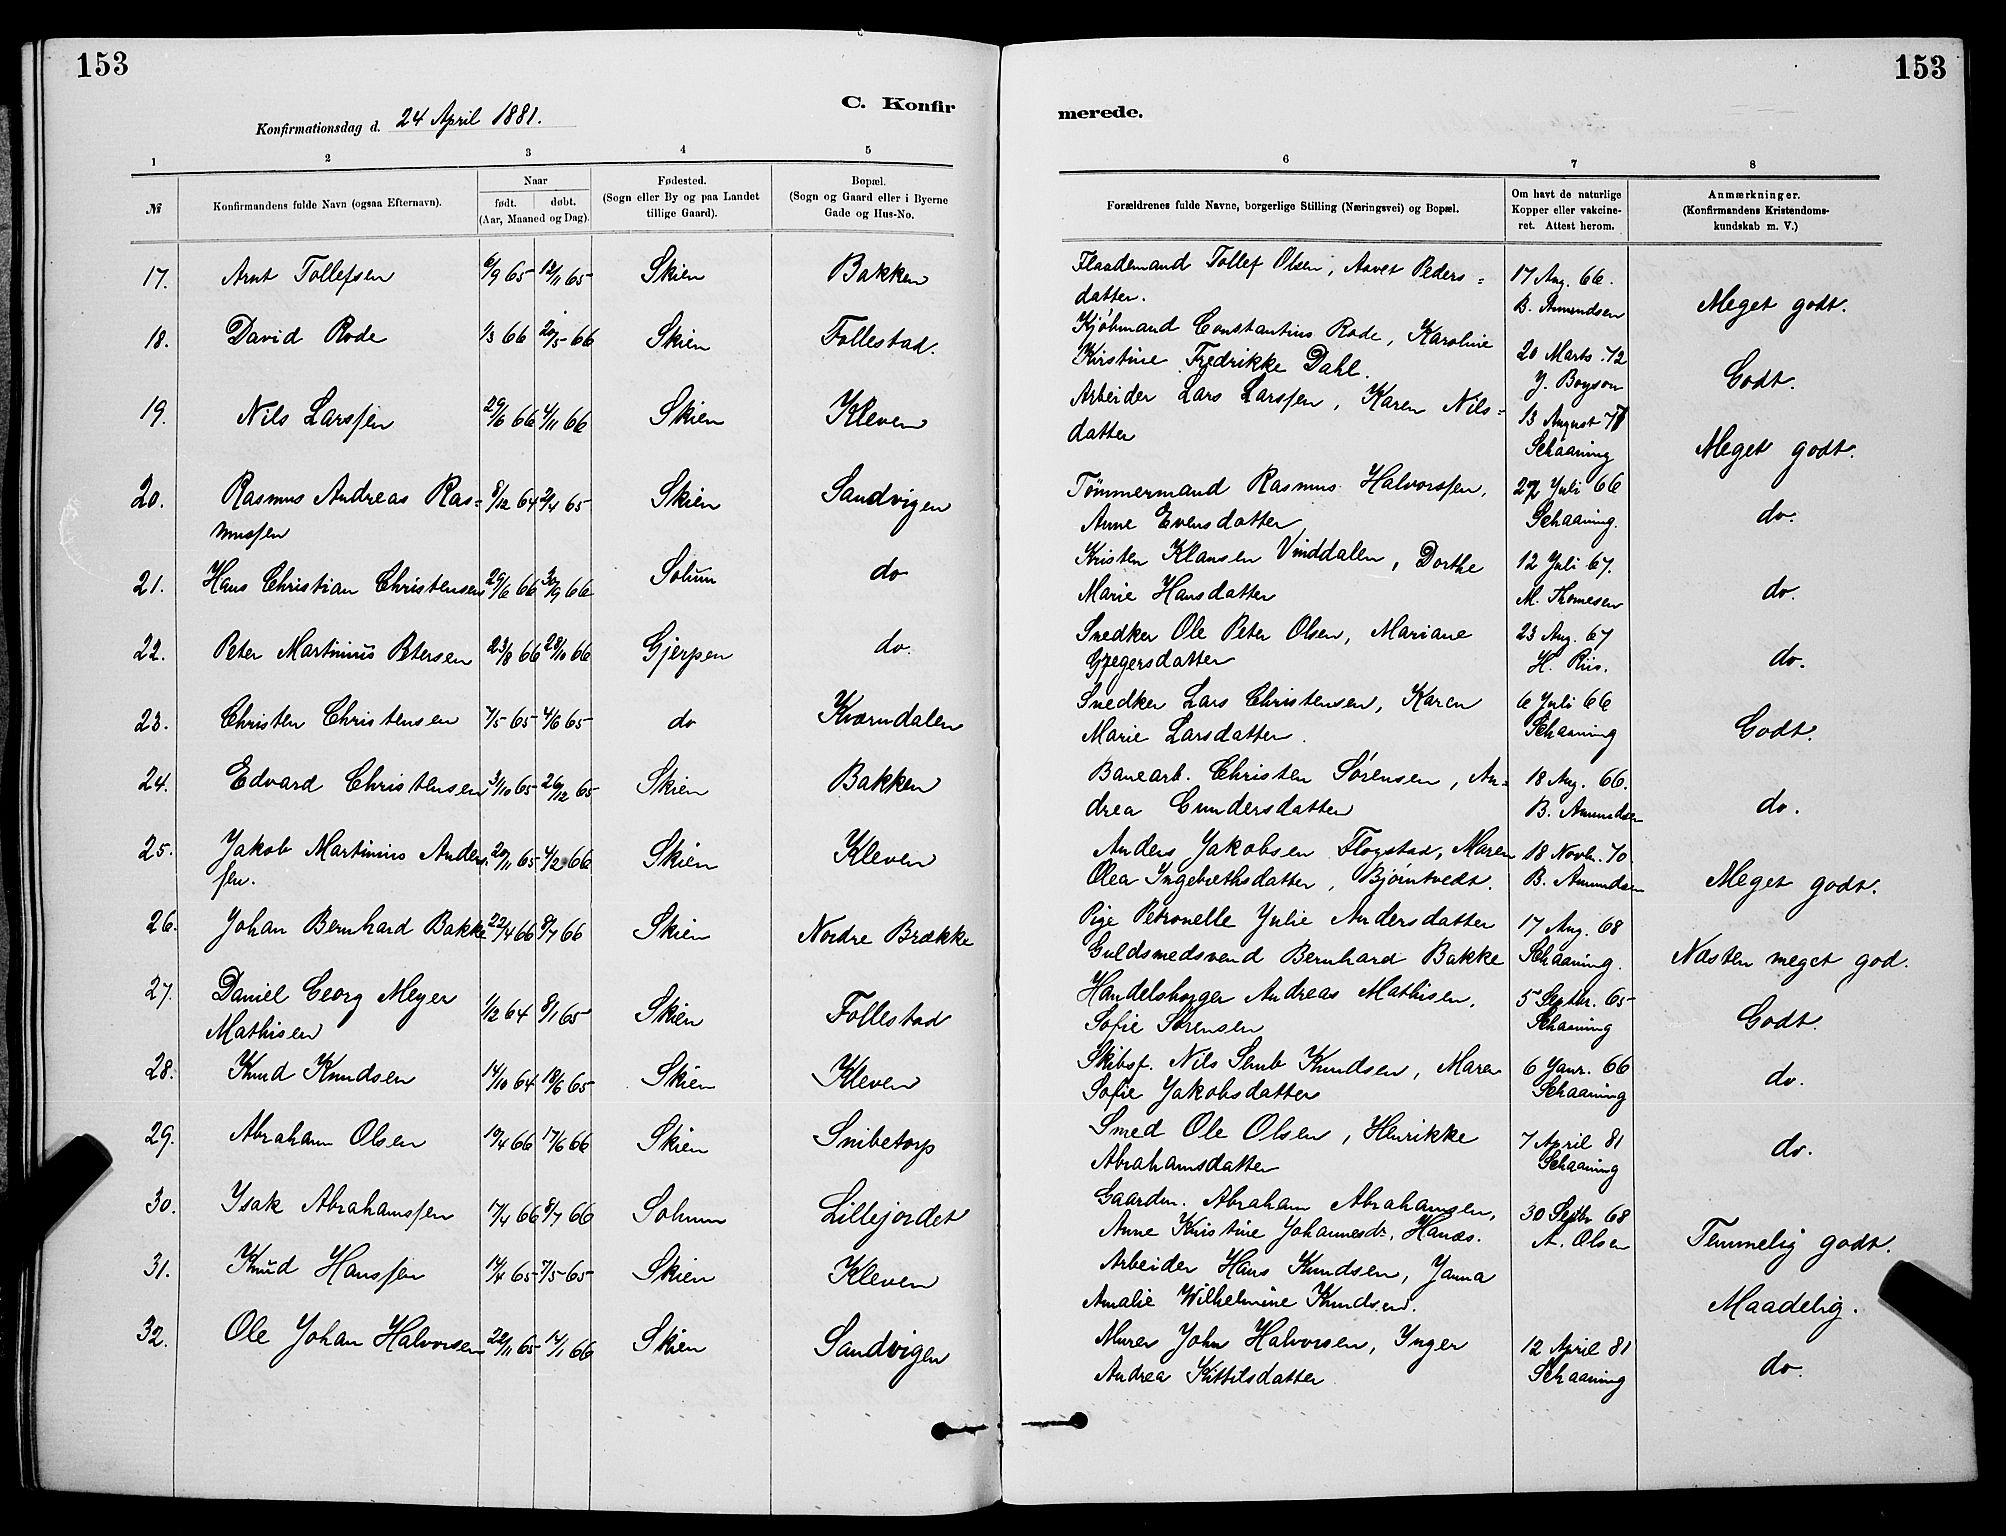 153
153
C. Konfir
merede.
Konfirmationsdag d. 24 April 1881.
1 2 3 4 5 6 7 8
№
Konfirmandens fulde Navn (ogsaa Efternavn).
Naar
født. døbt.
(Aar, Maaned og Dag).
Fødested.
(Sogn eller By og paa Landet
tillige Gaard).
Bopæl.
(Sogn og Gaard eller i Byerne
Gade og Hus-No.
Forældrenes fulde Navne, borgerlige Stilling (Næringsvei) og Bopæl.
Om havt de naturlige
Kopper eller vakcine-
ret. Attest herom.
Anmærkninger.
(Konfirmandens Kristendoms-
kundskab m. V.)
17. Arnt Tollefsen 6/9 65 12/11 65 Skien Bakken Flaademand Tollef Olsen, Peders= 17 Aug. 66.
datter. B. Amundsen Meget godt.
18. David Rode 1/3 66 20/5 66 Skien Follestad. Kjøbmand Constantius Rode, Karoline
Kirstine Fredrikke Dahl. 20 Marts 72
J. Boyson Godt.
19. Nils Larssen 29/6 66 4/11 66 Skien Kleven Arbeider Lars Larssen, Karen Nils=
datter 13 August
Schaaning Meget godt.
20. Rasmus Andreas Ras= 8/12 64 2/4 65 Skien Sandvigen Tømmermand Rasmus Halvorssen, 27 Juli 66
mussen Anne Evensdatter Schaaning. do.
21. Hans Christian Christensen 29/6 66 30/9 66 Solum do Kristen Klausen Vinddalen, Dorthe 12 Juli 67.
Marie Hansdatter M. Thomesen do.
22. Peter Martinius Petersen 23/8 66 28/10 66 Gjerpen do. Snedker Ole Peter Olsen, Mariane 23 Aug. 67
Gregersdatter H. Riis. do.
23. Christen Christensen 7/5 65 4/6 65 do Kværndalen Snedker Lars Christensen, Karen 6 Juli 66
Marie Larsdatter. Schaaning Godt.
24. Edvard Christensen 3/10 65 26/12 65 Skien Bakken Banearb. Christen Sørensen, An= 18 Aug. 66.
drea Gundersdatter B. Amundsen do.
25. Jakob Martinius Anders 20/11 65 4/2 66 Skien Kleven Anders Jakobsen Flogstad, Maren 18 Novbr. 70.
sen. Olea Ingebrethsdatter, Bjørntvedt. B. Amundsen Meget godt.
26. Johan Bernhard Bakke 22/4 66 8/7 66 Skien Nordre Brække Pige Petronelle Julie Andersdatter 17 Aug. 68
Guldsmedsvend Bernhard Bakke Schaaning. Næsten meget god.
27. Daniel Georg Meyer 1/12 64 8/1 65 Skien Follestad Handelsborger Andreas Mathisen, 5 Septbr. 65
Mathisen Sofie Sørensen Schaaning Godt.
28. Knud Knudsen 14/10 64 18/6 65 Skien Kleven Skibsf. Nils Knudsen, Maren 6 Janr. 66
Sofie Jakobsdatter Schaaning do.
29. Abraham Olsen 17/6 66 Skien Snibetorp Smed Ole Olsen, Henrikke 7 April 81
Abrahamsdatter Schaaning do.
30. Isak Abrahamssen 17/4 66 8/7 66 Solum Lillejordet Gaardm. Abraham Abrahamsen, 30 Septbr 68
Anne Kristine Johannesdr., Hanæs. A. Olsen Temmelig godt.
31. Knud Hanssen 14/4 65 7/5 65 Skien Kleven Arbeider Hans Knudsen, Janna
Amalie Wilhelmine Knudsen. Maadelig.
32. Ole Johan Halvorsen 22/11 65 14/1 66 Skien Sandvigen Murer John Halvorsen, Inger 12 April 81
Andrea Kittilsdatter Schaaning do.